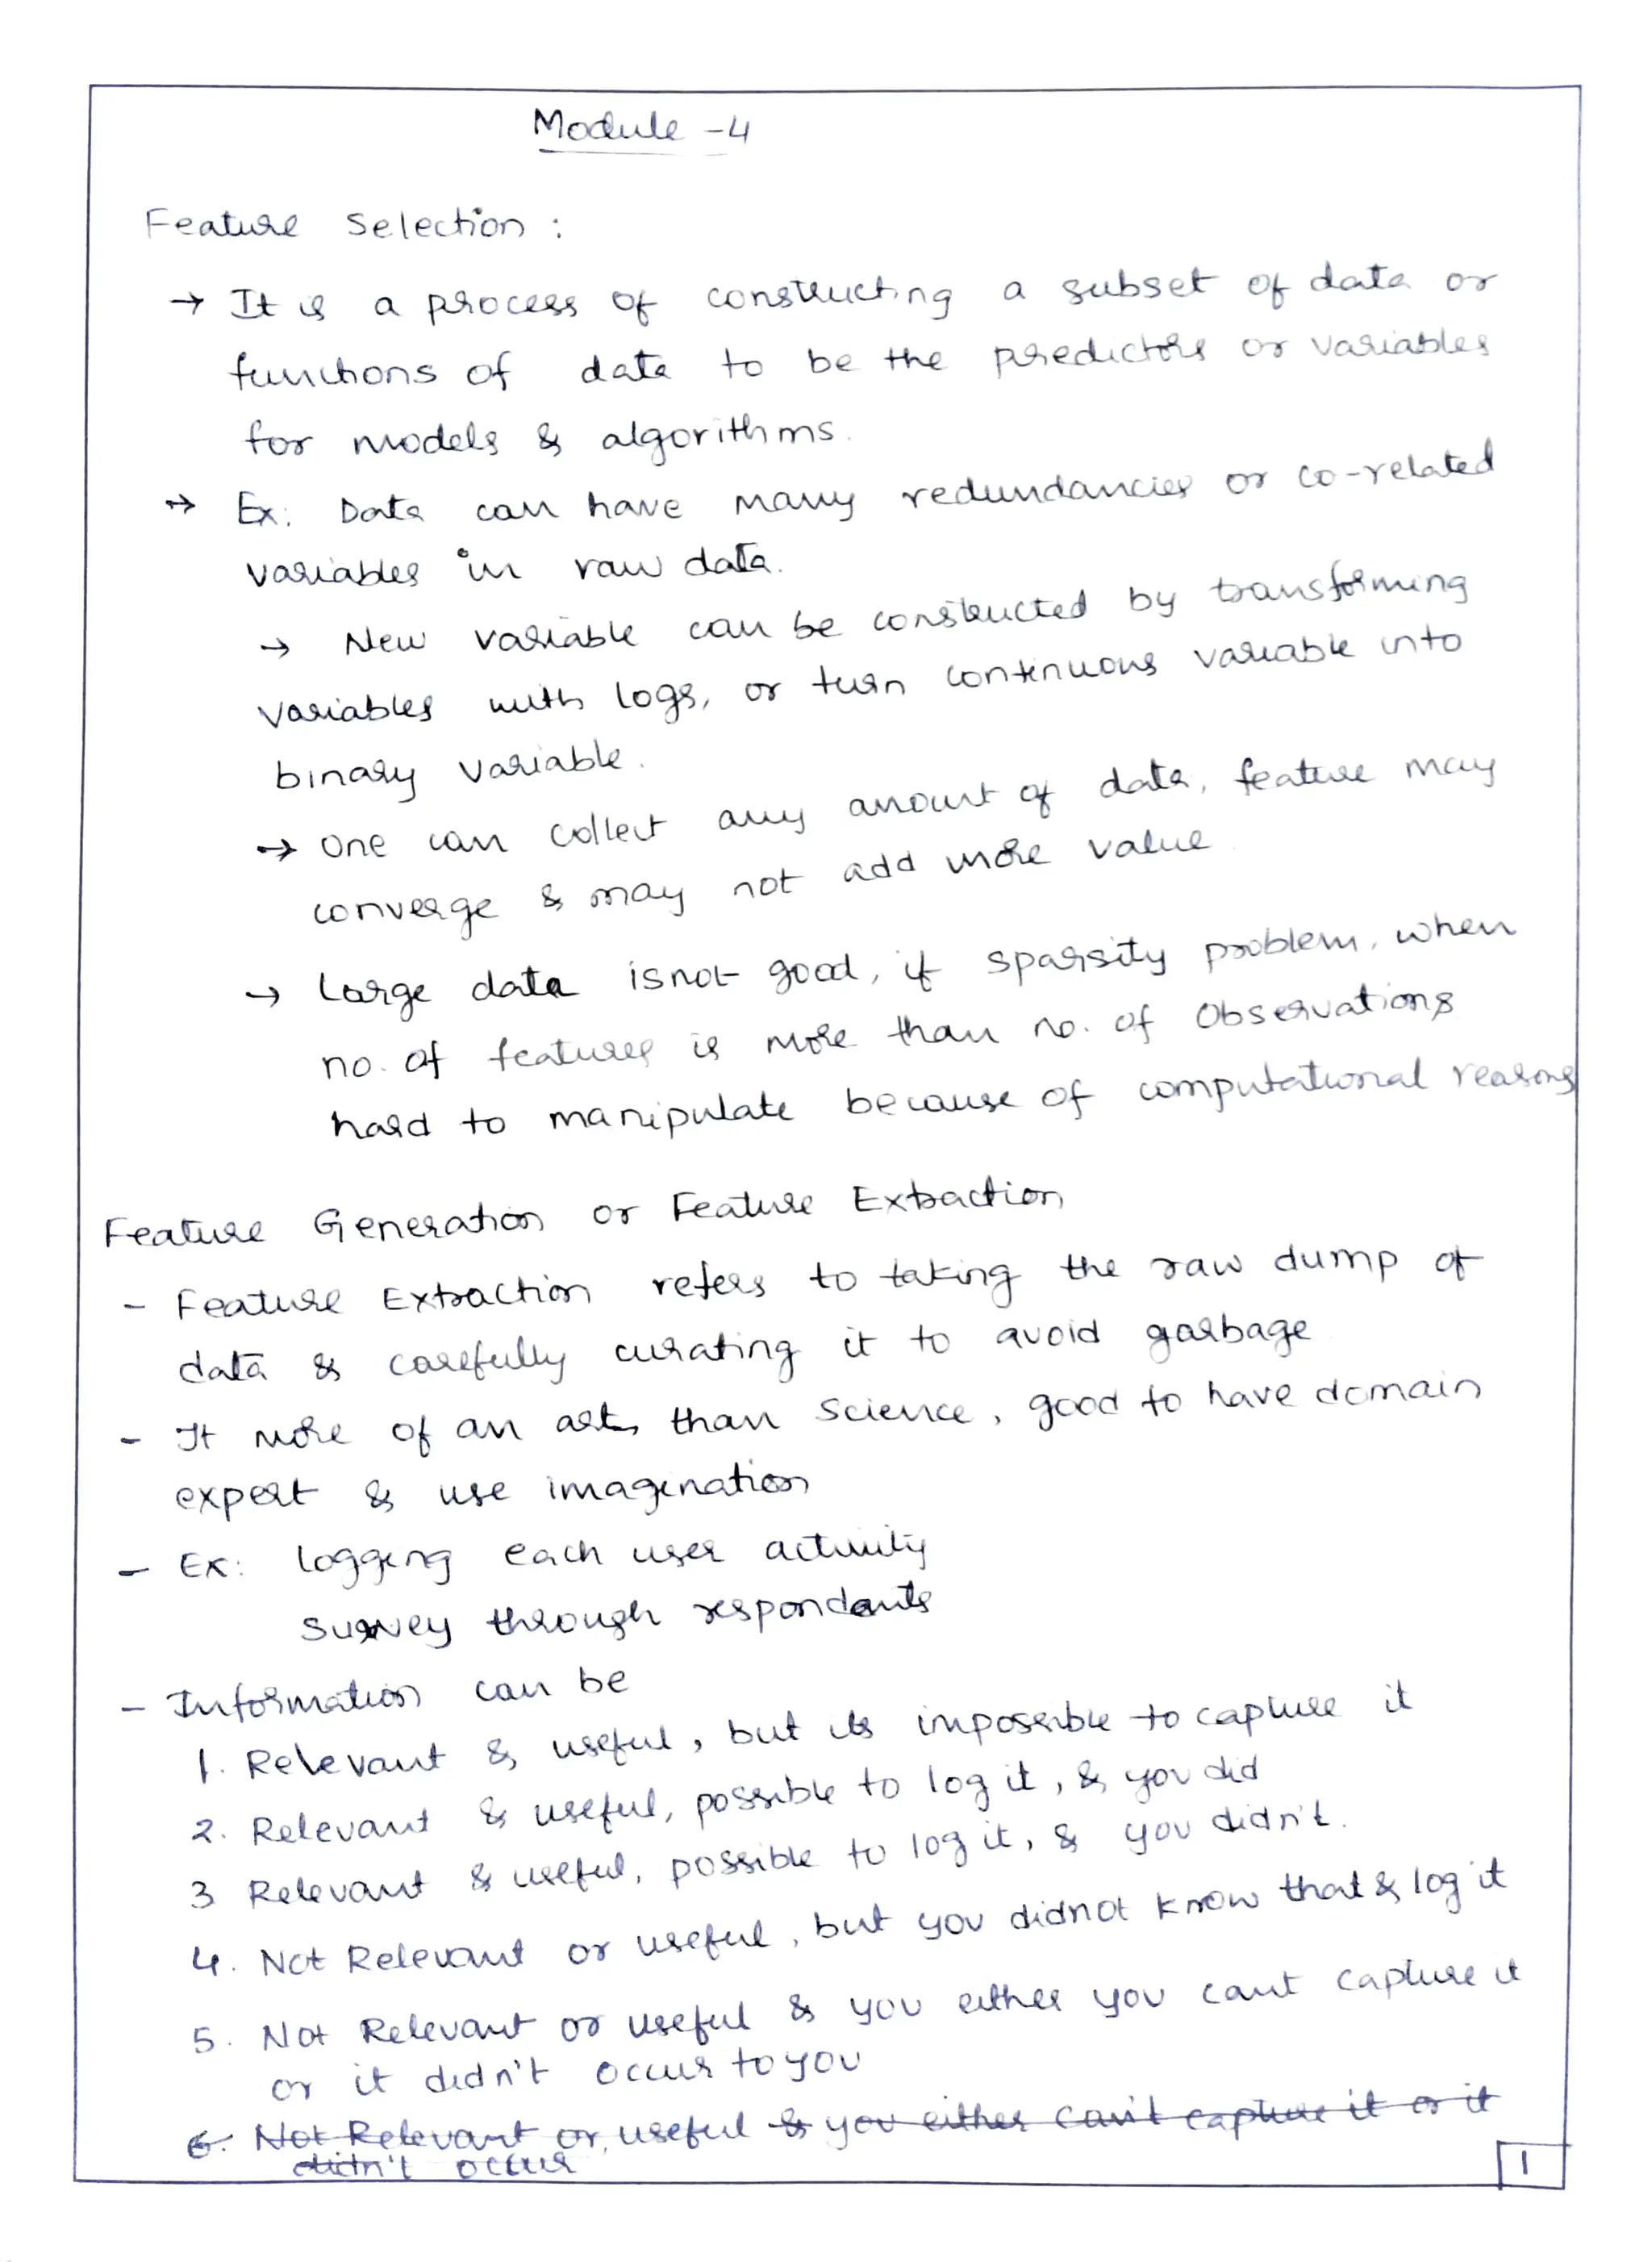 Module -4
Feature Selection :
→ It is a process of constructing a subset of data or
functions of data to be the predictors or variables
for models & algorithms.
→ Ex: Data can have many redundancies or co-related
variables in raw data.
→ New variable can be constructed by transforming
variables with logs, or turn continuous variable into
binary variable.
→ One can collect any amount of data, feature may
converge & may not add more value
→ Large data is not good, if sparsity problem, when
no. of features is more than no. of Observations
hard to manipulate because of computational reasons
Feature Generation or Feature Extraction
- Feature Extraction refers to taking the raw dump of
data & carefully curating it to avoid garbage
- It more of an art, than Science, good to have domain
expert & use imagination
- Ex: Logging each user activity
Survey through respondants
- Information can be
1. Relevant & useful, but its impossible to capture it
2. Relevant & useful, possible to log it, & you did
3 Relevant & useful, possible to log it, & you didn't.
4. Not Relevant or useful, but you didnot know that & log it
5. Not Relevant or useful & you either you cant capture it
or it didn't occur to you
6. Not Relevant or, useful & you either can't capture it or it
didn't occur
1